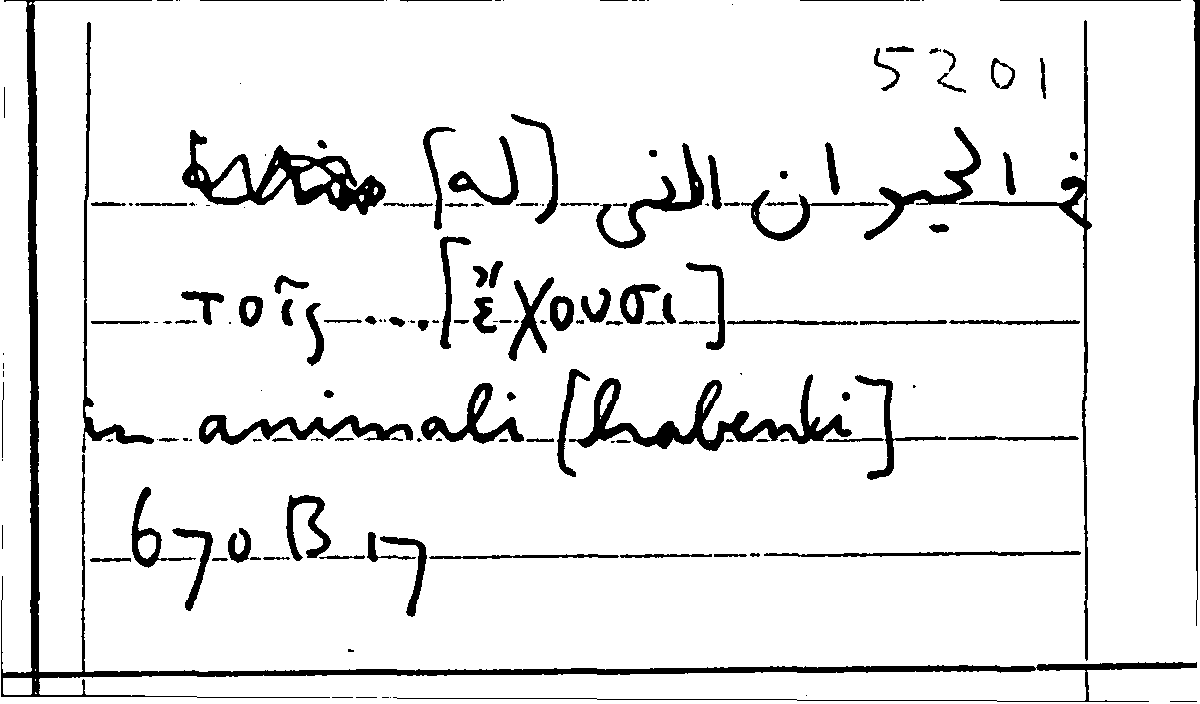 5201
في الحيوان التى [له]
τοῖς ... [ἔχουσι]
in animali [habenti]
670 B 17